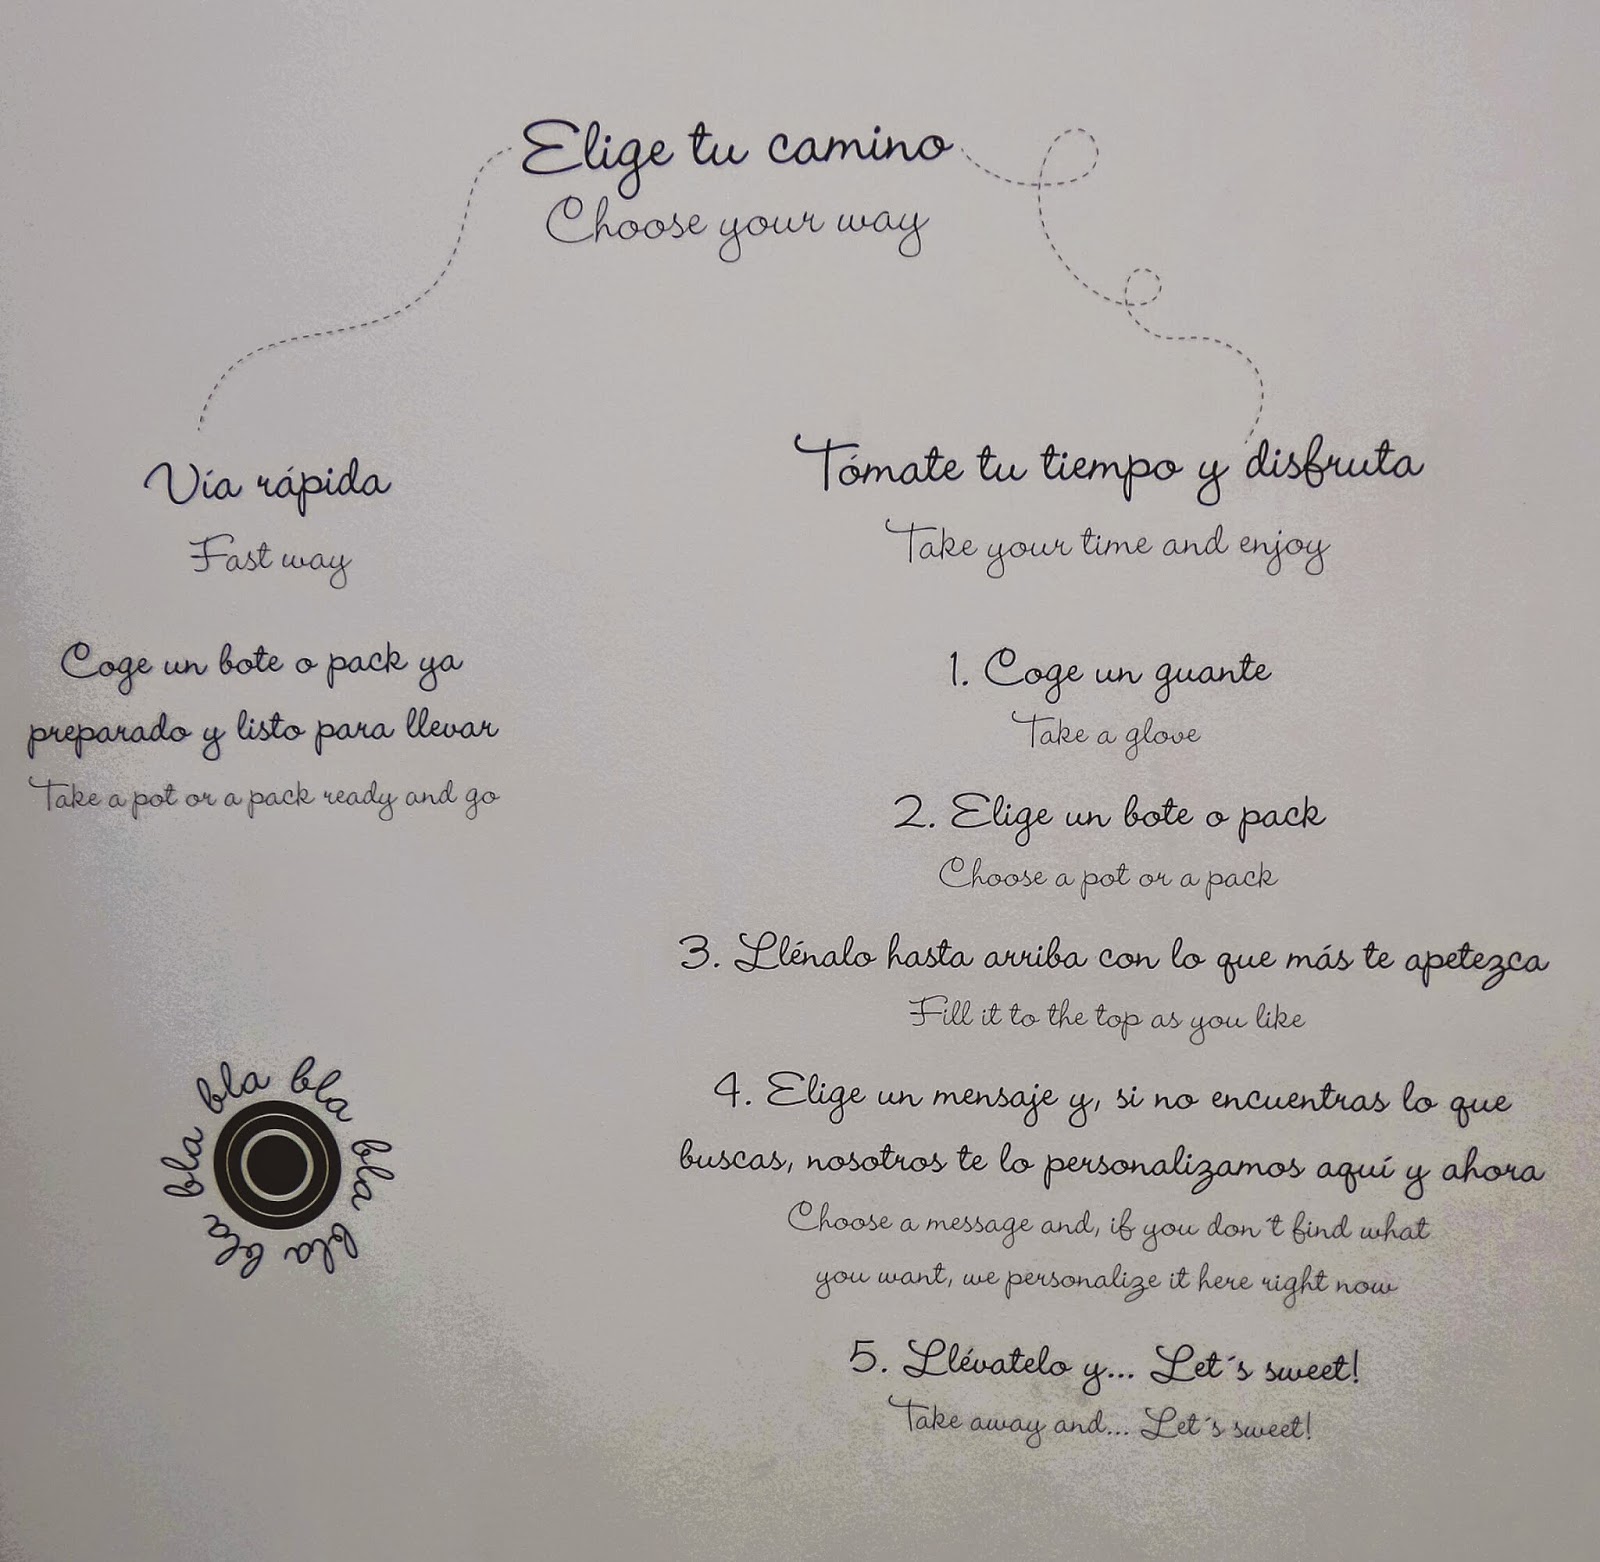 Elige tu camino
Choose your way
Vía rápida
Fast way
Coge un bote o pack ya
preparado y listo para llevar
Take a pot or a pack ready and go
bla bla bla bla bla bla
Tómate tu tiempo y disfruta
Take your time and enjoy
1. Coge un guante
Take a glove
2. Elige un bote o pack
Choose a pot or a pack
3. Llénalo hasta arriba con lo que más te apetezca
Fill it to the top as you like
4. Elige un mensaje y, si no encuentras lo que
buscas, nosotros te lo personalizamos aquí y ahora
Choose a message and, if you don´t find what
you want, we personalize it here right now
5. Llévatelo y... Let´s sweet!
Take away and... Let´s sweet!